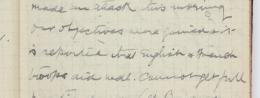 made an attack this morning
our objectives were gained & it
is reported that English & French
troops did well. Cannot get full